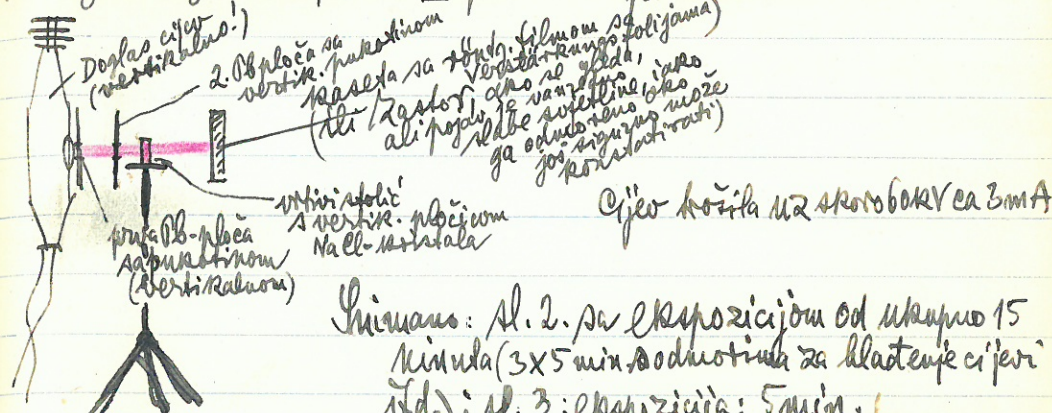 Doglas cijev
(vertikalno!)
2. Pb ploča sa
vertik. pukotinom
kaseta sa röntg. filmom sa
Verstärkungsfolijama)
(ili /Zastor, ako se gleda,
ali pojav je vanredno
slabe svjetline, iako
ga odmoreno oko
još sigurno može
konstatirati)
vrtivi stolić
s vertik. pločicom
NaCl-kristala
prva Pb-ploča
sa pukotinom
(vertikalnom)
Cijev trošila uz skoro 60kV ca 3mA
Snimano: sl. 2. sa ekspozicijom od ukupno 15
minuta (3x5 min. s odmorima za hlađenje cijevi
itd.); sl. 3: ekspozicija: 5 min.